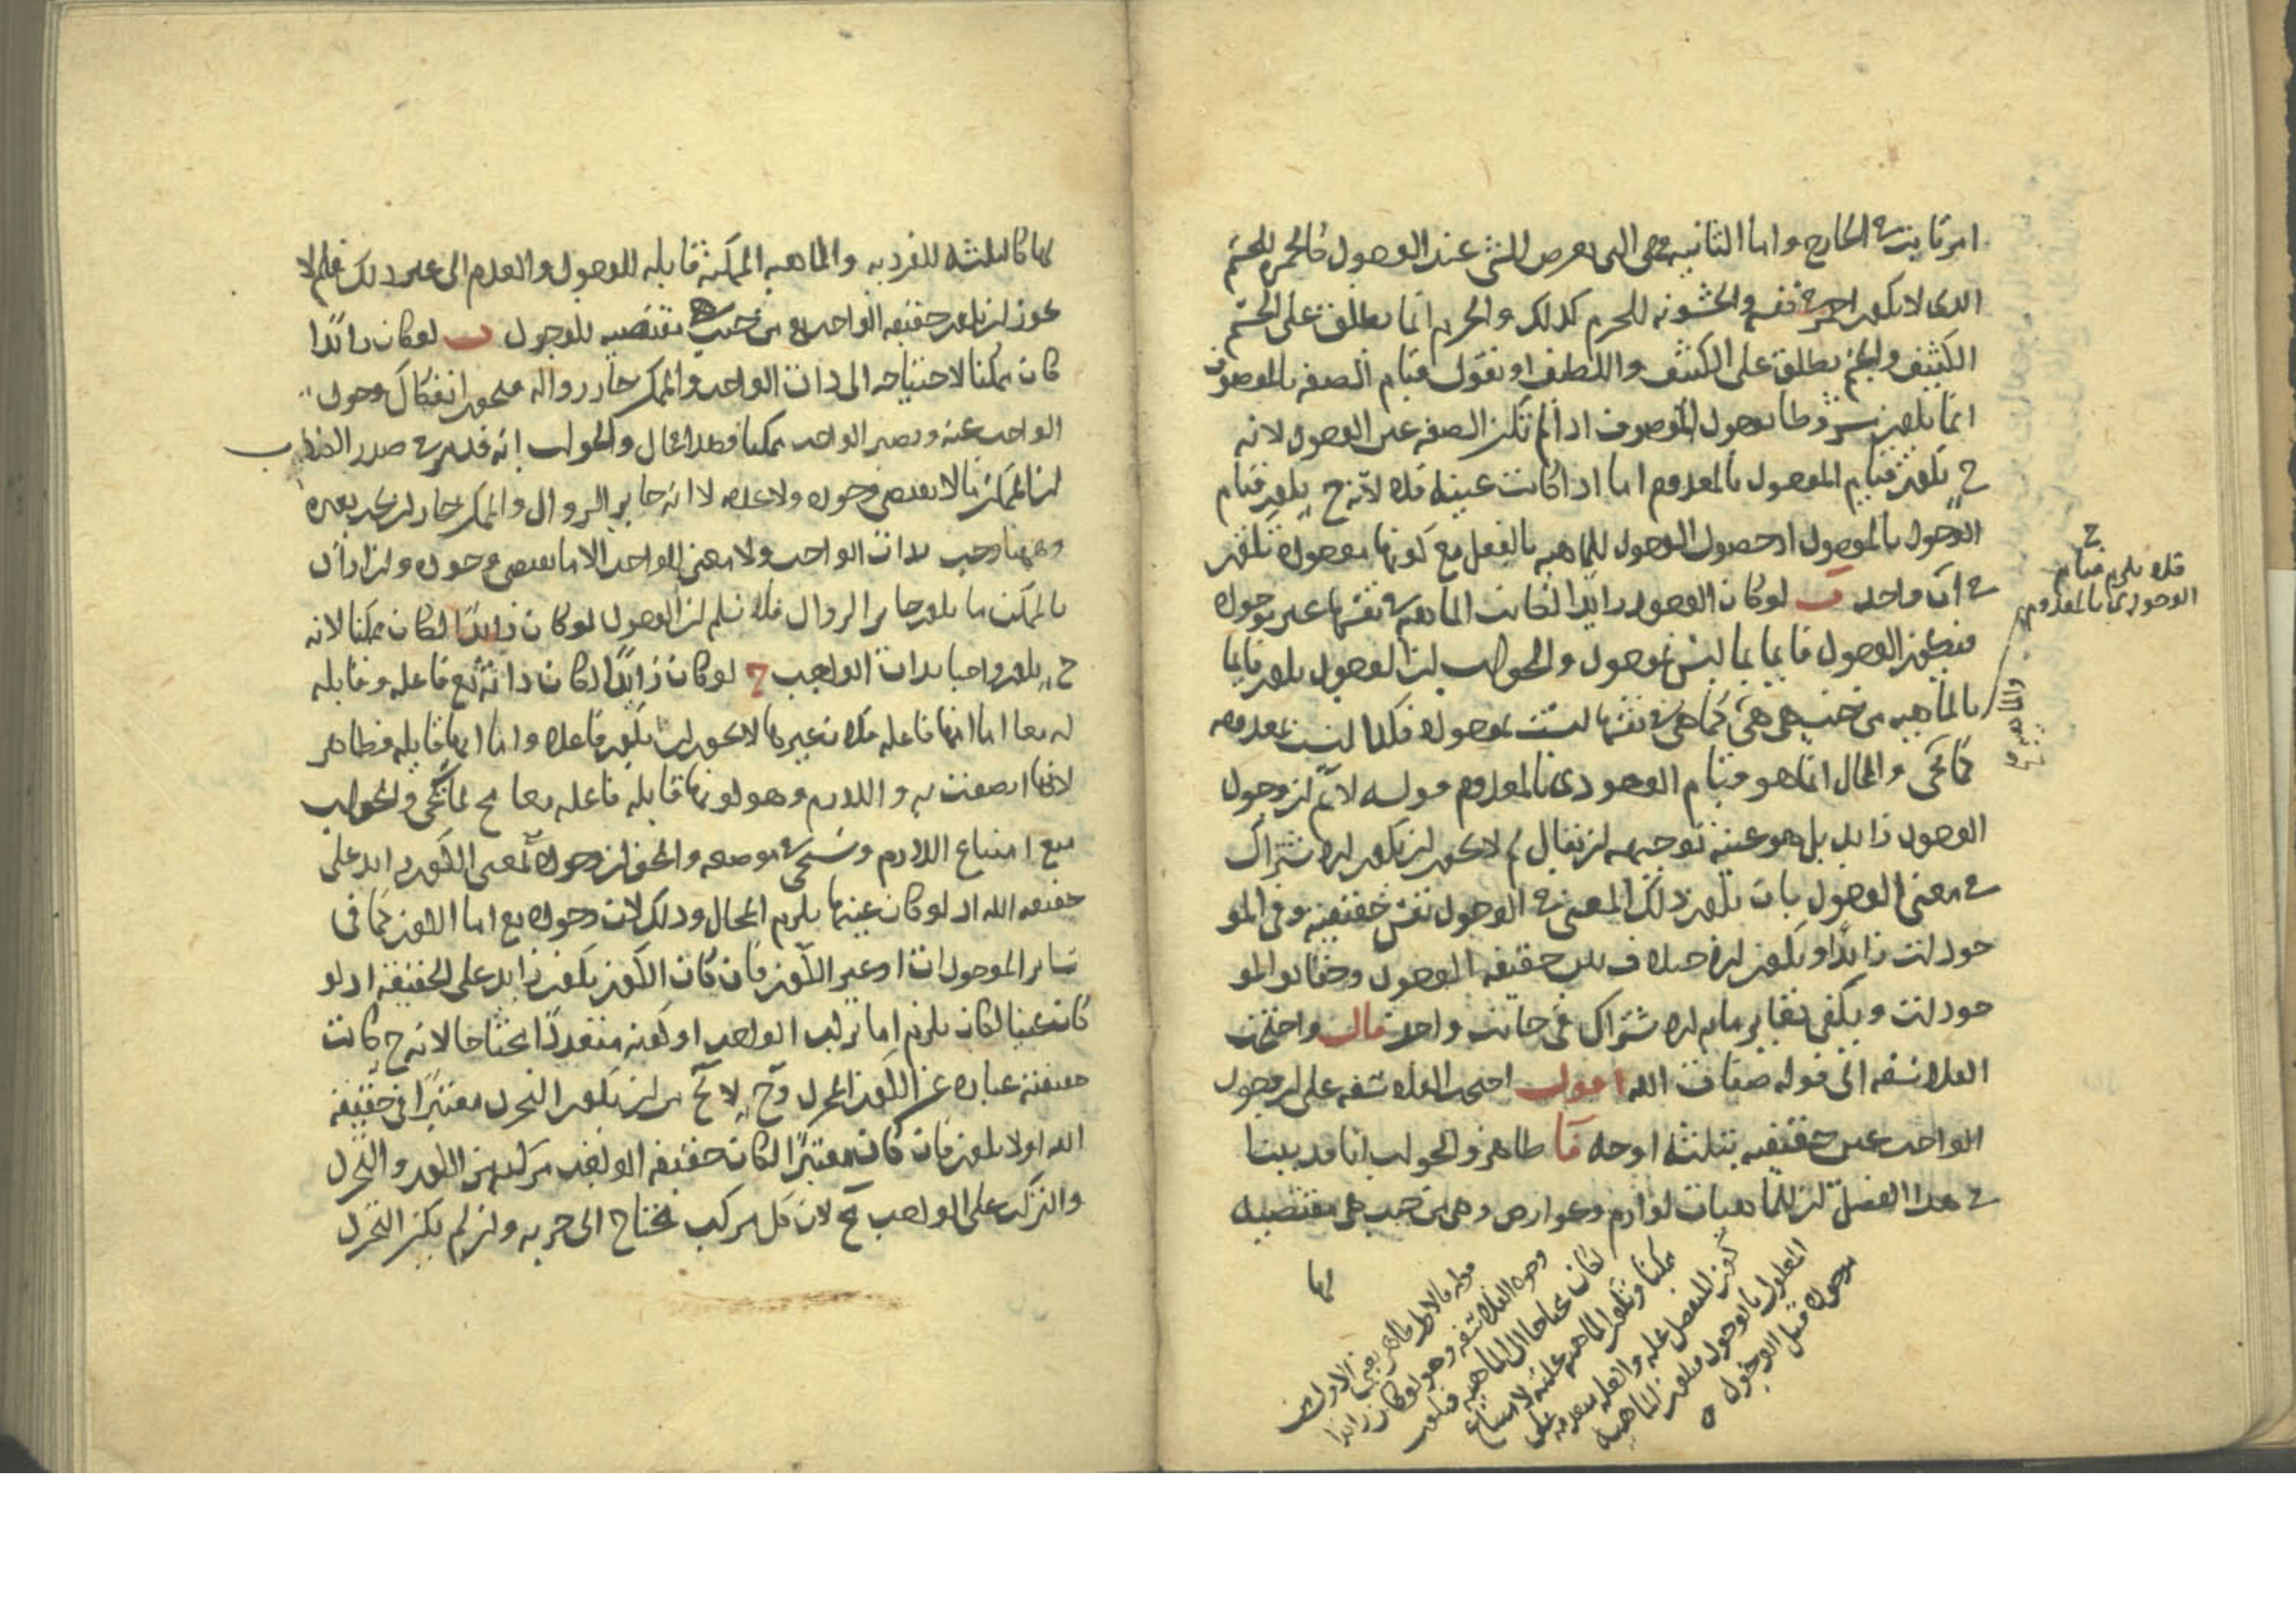 امر ثابت في الخارج واما الثانية فهى التي تعرض للشئ عند الوجود كالحمرة للجسم
الذي لا يكون احمر في نفسه والخشونة للجرم كذلك والجرم انما يطلق على الجسم
الكثيف والجسم يطلق على الكثيف واللطيف او نقول قيام الصفة بالموصوف
انما يكون مشروطا بوجود الموصوف اذا لم تكن الصفة عين الوجود لانه
ح يكون قيام الموجود بالمعدوم اما اذا كانت عينه فلا لانه ح يكون قيام
الوجود بالموجود اذ حصول الوجود للماهية بالفعل مع كونها موجودة تكون
في آن واحد ب لو كان الوجود زايدا لكانت الماهية في نفسها غير موجودة
فيكون الوجود قايما بما ليس بموجود والجواب ان الوجود يكون قايما
بالماهية من حيث هي هي كما هي في نفسها ليست بموجودة فكذا ليست بمعدومة
كما يجي والمحال انما هو قيام الوجودي بالمعدوم قوله لانم ان وجود
الوجود زايد بل هو عينه توجيهه ان يقال لم لا يجوز ان يكون الاشتراك
في معنى الوجود بان يكون ذلك المعنى في الوجود نفس حقيقته وفي المو
جودات زايدا ويكون الاختلاف بين حقيقة الوجود وحقايق المو
جودات ويكفي تغاير ما به الاشتراك في جانب واحد قال واحتجت
الفلاسفة الى قوله صفات الله اقول احتجت الفلاسفة على ان وجود
الواجب عين حقيقته بثلثة اوجه فا ظاهر والجواب انا قد بينا
في هذا الفصل ان للماهيات لوازم وعوارض وهي من حيث هي مقتضية
لها
ح
فلا يلزم قيام
الوجودي بالمعدوم
قوله فالاول ظاهر يعني الاول من
وجوه الفلاسفة وهو لو كان زايدا
لكان محتاجا الى الماهية فيكون
ممكنا وتكون الماهية علته لامتناع
كون المنفصل علة والعلة متقدمة على
المعلول بالوجود فيكون الماهية
موجودة قبل الوجود
لها كالثلثة للفردية والماهية الممكنة قابلة للوجود والعدم الى غير ذلك فلم لا
يجوز ان يكون حقيقة الواجب تع من حيث هي مقتضية للوجود ب لو كان زايدا
كان ممكنا لاحتياجه الى ذات الواجب والممكن جاز زواله فيجوز انفكاك وجود
الواجب عنه ويصير الواجب ممكنا وهذا محال والجواب انه قد مر في صدر الكتاب
ان الممكن ما لا يقتضي وجوده ولا عدمه لا انه جايز الزوال والممكن جاز ان يجب بغيره
وههنا وجب بذات الواجب ولا معنى للواجب الا ما يقتضي وجوده وان اراد
بالممكن ما يكون جايز الزوال فلا نسلم ان الوجود لو كان زايدا لكان ممكنا لانه
ح يكون واجبا بذات الواجب ج لو كان زايدا لكان ذاته تع فاعله وقابله
له معا اما انها فاعله فلان غيرها لا يجوز ان يكون فاعلا واما انها قابله فظاهر
لانها اتصفت به واللازم وهو كونها قابلة فاعلة معا مح لما يجي والجواب
منع امتناع اللازم وسيجي في موضعه والحق ان وجوده بمعنى الكون زايد على
حقيقة الله اذ لو كان عينها يلزم المحال وذلك لان وجوده تع اما الكون كما في
ساير الموجودات او غير الكون فان كان الكون يكون زايد على الحقيقة اذ لو
كان عينا لكان يلزم اما تركب الواجب او كونه متعددا محتاجا لانه ح كانت
حقيقته عبارة عن الكون المجرد وح لا يخ من ان يكون التجرد معتبرا في حقيقة
الله او لا يكون فان كان معتبرا لكان حقيقة الواجب مركبة من الكون والتجرد
والتركب على الواجب مح لان كل مركب محتاج الى جزيه وان لم يكن التجرد